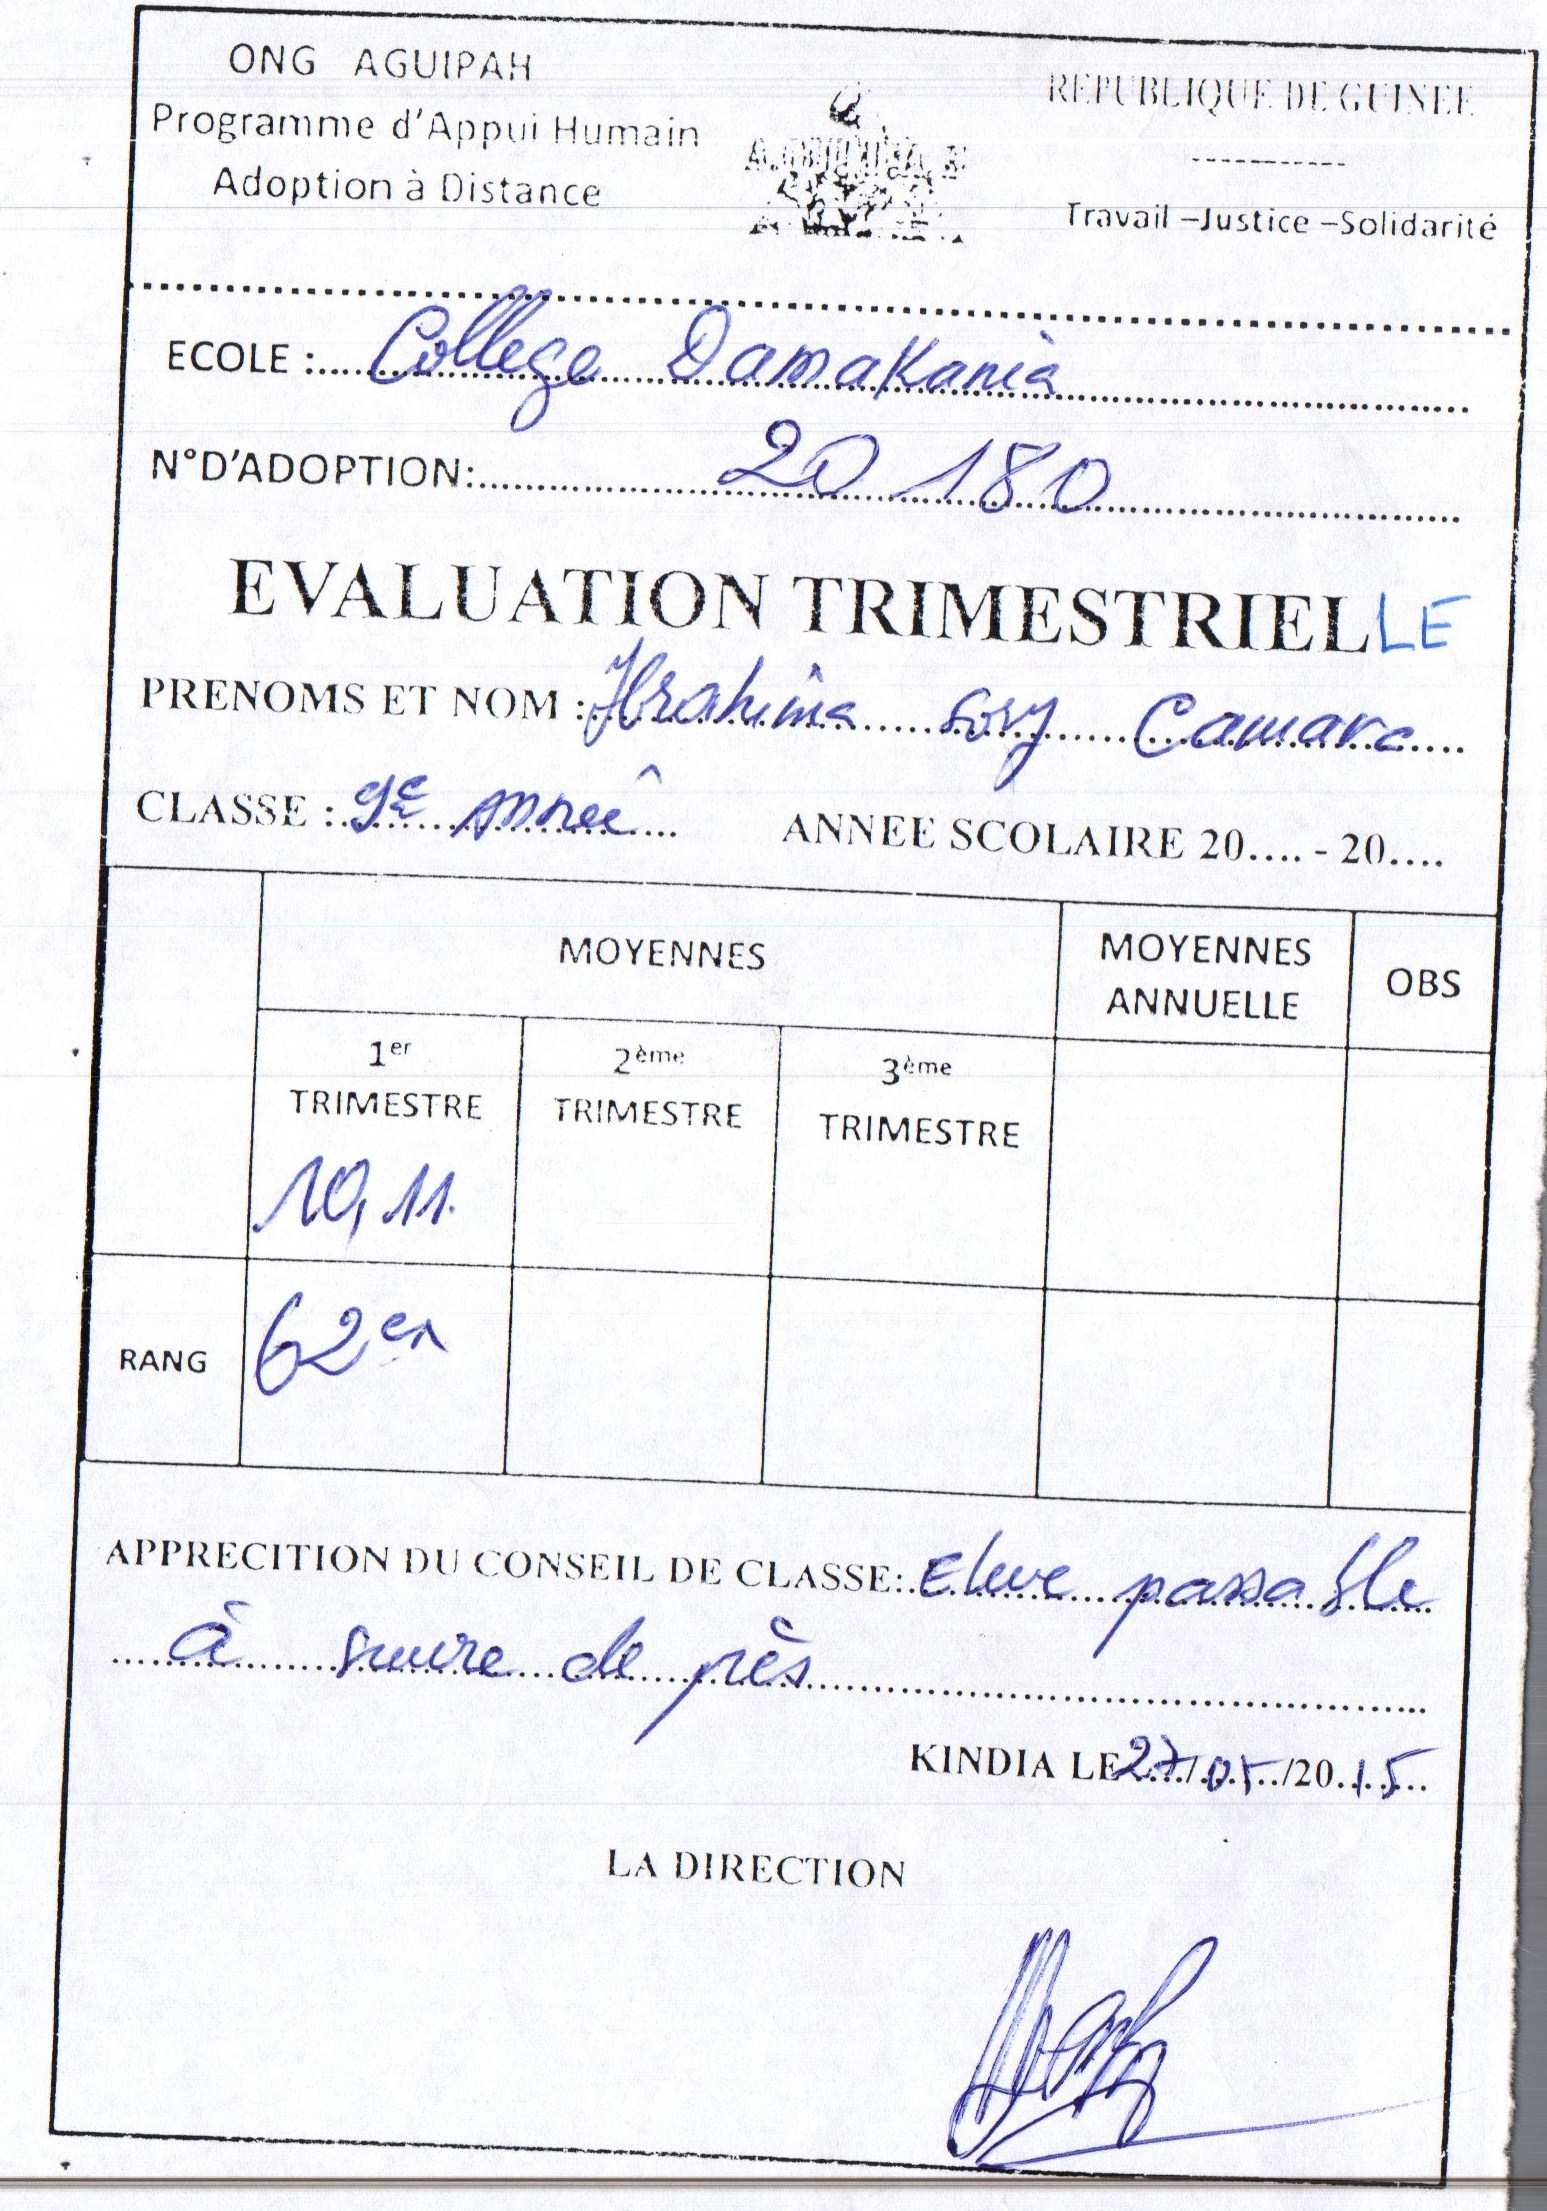 ONG AGUIPAH
Programme d'Appui Humain
Adoption à Distance
REPUBLIQUE DE GUINEE
-----------
Travail –Justice –Solidarité
ECOLE : College Damakania
N°D'ADOPTION: 20 180
EVALUATION TRIMESTRIELLE
PRENOMS ET NOM : Ibrahima Sory Camara
CLASSE : 9e année ANNEE SCOLAIRE 20.... - 20....
MOYENNES
MOYENNES ANNUELLE
OBS
1er TRIMESTRE
2ème TRIMESTRE
3ème TRIMESTRE
10,11.
RANG 62en
APPRECITION DU CONSEIL DE CLASSE: Eleve passable
à suivre de près
KINDIA LE 27/05/2015
LA DIRECTION